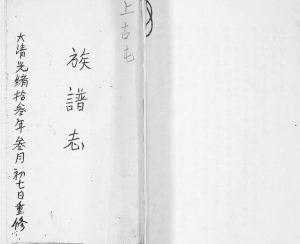 上古屯
族譜志
大清光緒拾叁年叁月初七日重修